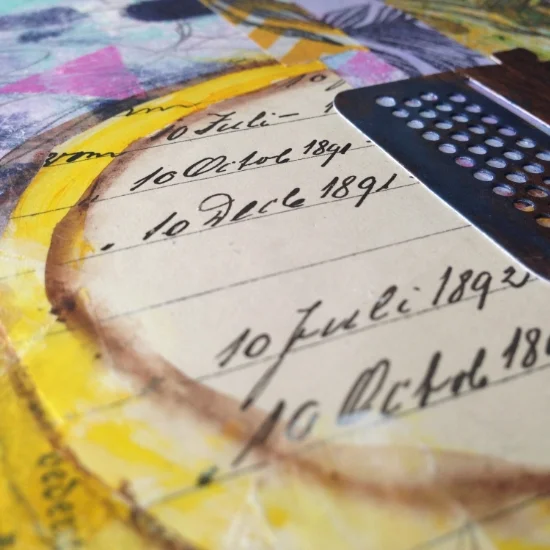 10 Juli-
vom
10 Octob 1891
10 Decb 1891
10 Juli 1892
10 Octob 18